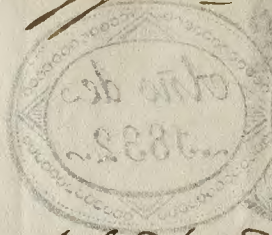 Año de
1832